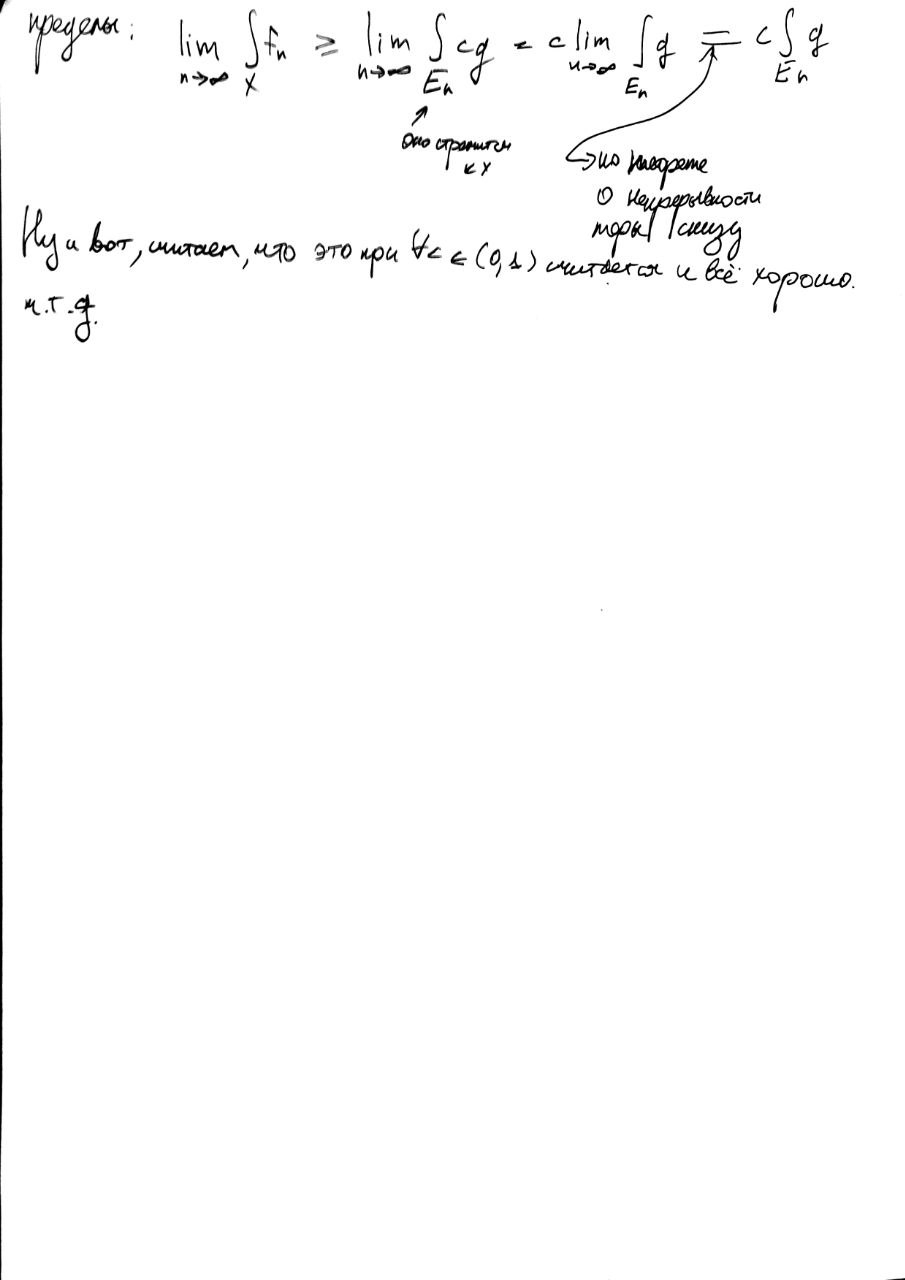 пределы: lim n→∞ ∫ X fₙ ≥ lim n→∞ ∫ Eₙ cg = c lim n→∞ ∫ Eₙ g = c ∫ Eₙ g
оно стремится
к X
по теореме
о непрерывности
меры снизу
Ну и вот, считаем, что это при ∀c ∈ (0,1) считается и всё хорошо.
ч.т.д.